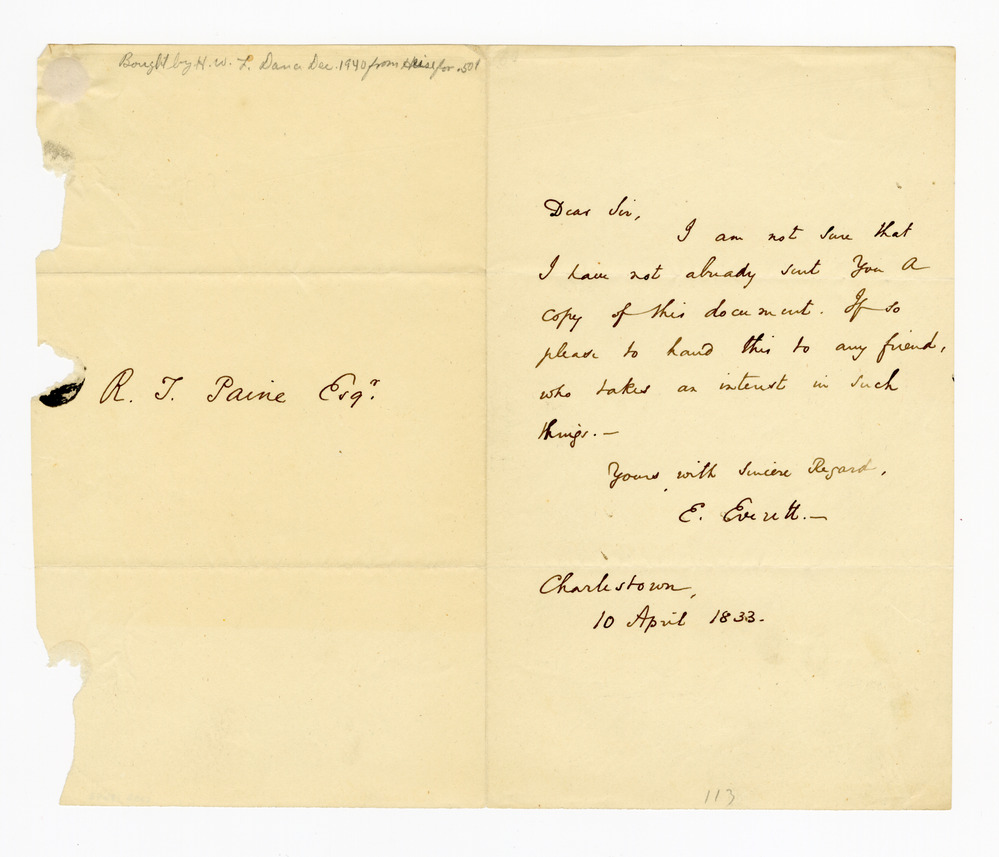 Bought by H. W. L. Dana Dec. 1940 from for .50¢
R. T. Paine Esqr.
Dear Sir,
I am not sure that
I have not already sent You a
copy of this document. If so
please to hand this to any friend,
who takes an interest in such
things.—
Yours, with sincere Regard,
E. Everett.—
Charlestown,
10 April 1833.
113